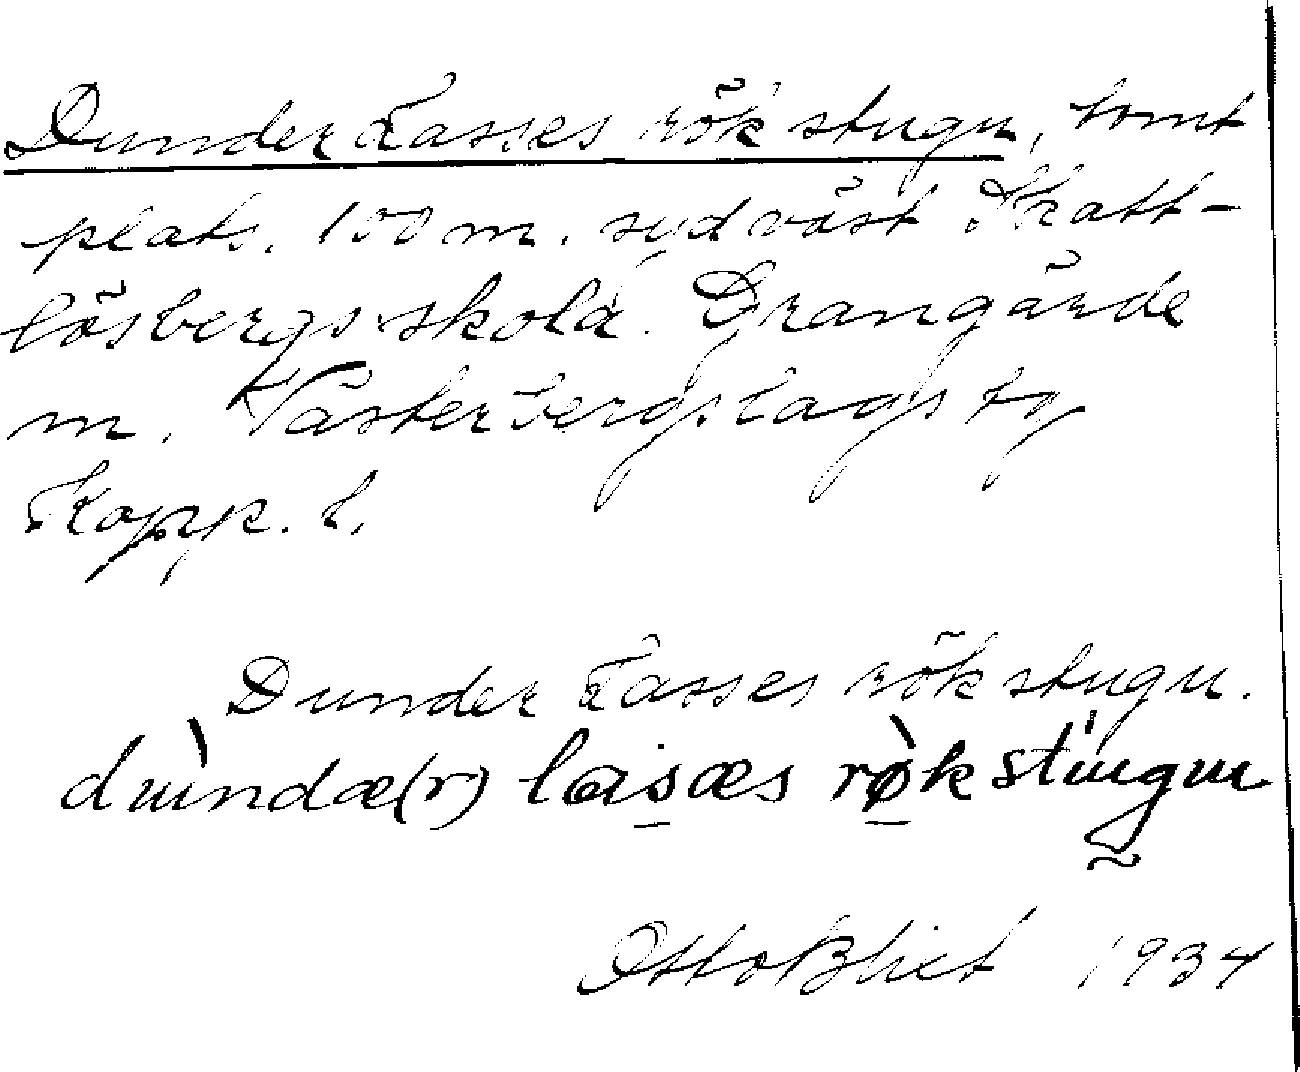 Dunder Lasses rökstugu, tomt
plats. 100 m. sydväst Skatt-
lösbergs skola. Grangärde
m. Västerbergslags tg
Kopp. l.
Dunder Lasses rökstugu.
dùndæ(r) lasæs rø̀kstugu
Otto Blixt 1934